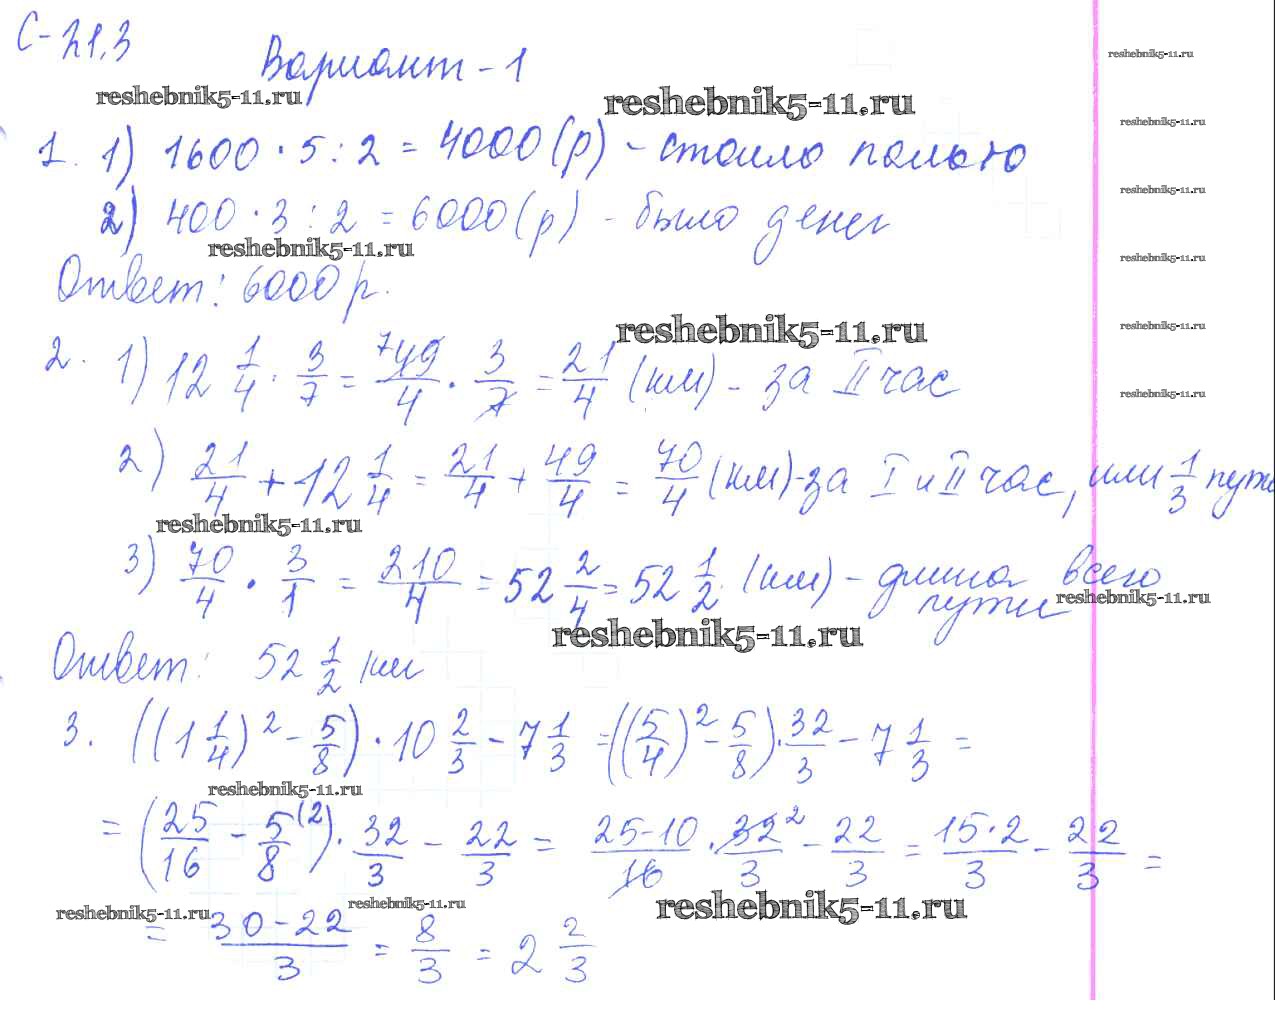 С-21.3
Вариант-1
reshebnik5-11.ru
reshebnik5-11.ru
reshebnik5-11.ru
reshebnik5-11.ru
1. 1) 1600 · 5 : 2 = 4000 (р) - стоило пальто
2) 400 · 3 : 2 = 6000 (р) - было денег
reshebnik5-11.ru
reshebnik5-11.ru
reshebnik5-11.ru
Ответ: 6000 р.
reshebnik5-11.ru
reshebnik5-11.ru
2. 1) 12 1/4 · 3/7 = 7 49/4 · 3/7 = 21/4 (км) - за II час
reshebnik5-11.ru
2) 21/4 + 12 1/4 = 21/4 + 49/4 = 70/4 (км) - за I и II час, или 1/3 пути
reshebnik5-11.ru
3) 70/4 · 3/1 = 210/4 = 52 2/4 = 52 1/2 (км) - длина всего
пути
reshebnik5-11.ru
reshebnik5-11.ru
Ответ: 52 1/2 км
3. ((1 1/4)² - 5/8) · 10 2/3 - 7 1/3 = ((5/4)² - 5/8) · 32/3 - 7 1/3 =
reshebnik5-11.ru
= (25/16 - 5/8 (2) · 32/3 - 22/3 = 25-10/16 · 32/3 2 - 22/3 = 15·2/3 - 22/3 =
reshebnik5-11.ru
reshebnik5-11.ru
reshebnik5-11.ru
= 30-22/3 = 8/3 = 2 2/3